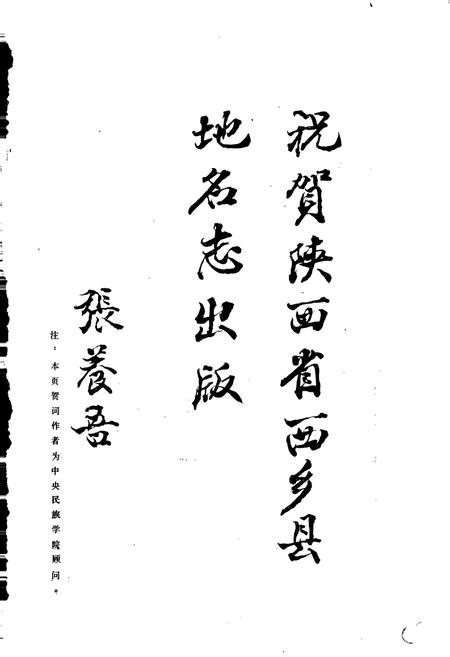 祝賀陕西省西乡县
地名志出版
張养吾
注：本页贺词作者为中央民族学院顾问。